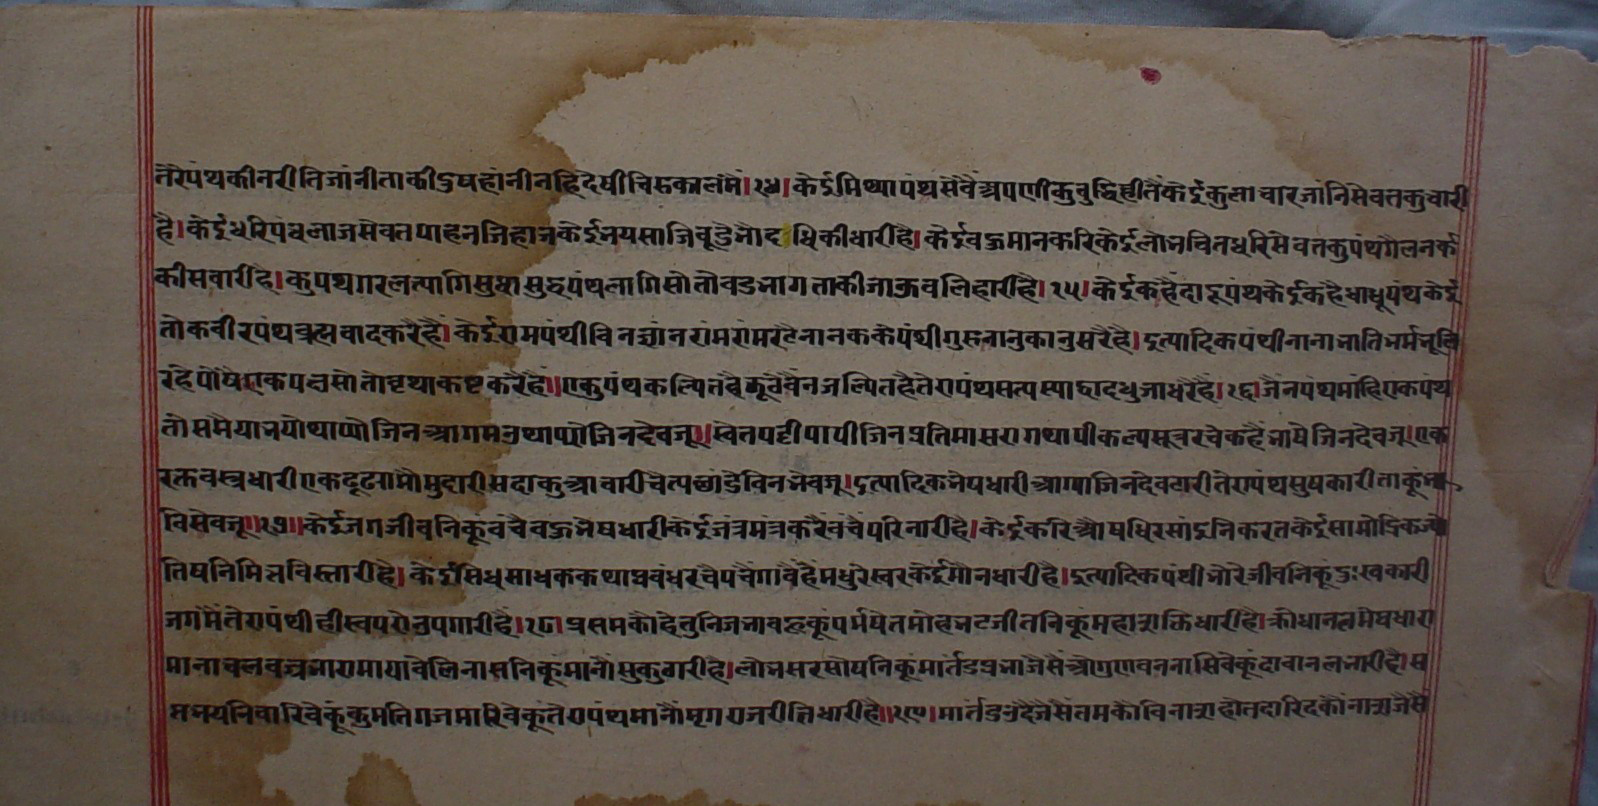 तैरेपंथकीनरीतिजांनीताकीऽषहांनीनहिदेषीचिरकालमं।१४।केईमिथ्यापंथसेवैंअपणीकुबुद्धिहीतैंकेईकुलाचारजांनिसेवतकुचारी
है।केईधरिपंथलाजसेवतपाहनजिहाजकेईभयसाजिबूडेभोदधिकीधारीहै।केईबऊमानकरिकेईलोभचितधरिसेवतकुपंथगैलनर्क
कीसवारीहै।कुपथगरलत्यागिसुधासुद्धपंथलागिसोतोवडभागताकीजाऊवलिहारीहै।१५।केईकहैंदादूपंथकेईकहैंधाधूपंथकेई
तोकवीरपंथब्रह्मवादकरैहैं।केईरामपंथीविनज्ञांनरांमरांमरटैनानककेपंथीगुरुनानुकानुसरैहै।इत्यादिकपंथीनानाभातिभर्मभूलि
रहेपोषैएकपक्षसोतोवृथाकष्टकरैहैं॥एकुपंथकल्पितहैझूठेवैंनजल्पितहैतेरापंथसत्यस्याद्वादधुजाधरैहैं।१६।जैनपंथमांहिएकपंथ
तोसमैयाभयोथाप्योजिनआगमउथाप्योजिनदेवजू॥स्वेतपट्टीपापीजिनप्रतिमासरागथापीकल्पसूत्ररचेकहैंभाषेजिनदेवजू।एक
रक्तवस्त्रधारीएकढूढ्यामौमुदारीसदाकुआचारीचैत्यछांडेविनभेवजू।इत्यादिकभेषधारीआग्याजिनदेवटारीतेरापंथसुषकारीताकूंभ
विसेवजू॥१७॥केईजगजीवनिकूंवंचैबऊभेषधारीकेईजंत्रमंत्रकरैवंचैंपरिनारीहै।केईकरिऔषधिरसांइनिकरतकेईसामोद्रिकज्यो
तिषनिमित्तविस्तारीहै।केईसिधसाधककथाप्रबंधरचैपचैंगावैंहैमधुरेस्वरकेईमौनधारीहै।इत्यादिकपंथीभोरेजीवनिकूंदुःखकारी
जगमैंतेरापंथीहीस्वपरोउपगारीहैं।१८।प्रसमकौहेतुनिजभावहूकूंपर्मषेतमोहभटजीतनिकूंमहाशक्तिधारीहै।क्रोधानलमेघधारा
मानाचलवज्रभारामायावेलिनासनिकूंमानौसुकुठारीहै।लोभसरसोषनिकूंमार्तंडप्रभाजैसैंऔगुणवननासिवेकूंदावानलभारीहै।स
मभयनिवारिवेकूंकुमतिगजमारिवेकूंतेरापंथमानौंमृगराजरीतिधारीहै॥१९।मार्तंडउदैजैसैंतमकौविनाशहोतदारिदकौंनाशजैसैं